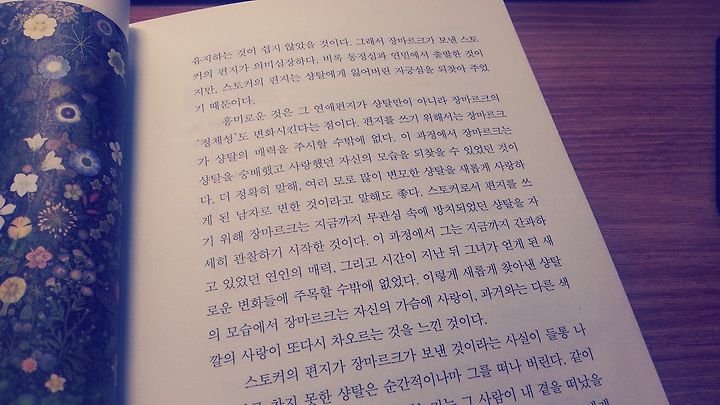 유지하는 것이 쉽지 않았을 것이다. 그래서 장마르크가 보낸 스토
커의 편지가 의미심장하다. 비록 동정심과 연민에서 출발한 것이
지만, 스토커의 편지는 샹탈에게 잃어버린 자긍심을 되찾아 주었
기 때문이다.
흥미로운 것은 그 연애편지가 샹탈만이 아니라 장마르크의
'정체성'도 변화시킨다는 점이다. 편지를 쓰기 위해서는 장마르크
가 샹탈의 매력을 주시할 수밖에 없다. 이 과정에서 장마르크는
샹탈을 숭배했고 사랑했던 자신의 모습을 되찾을 수 있었던 것이
다. 더 정확히 말해, 여러 모로 많이 변모한 샹탈을 새롭게 사랑하
게 된 남자로 변한 것이라고 말해도 좋다. 스토커로서 편지를 쓰
기 위해 장마르크는 지금까지 무관심 속에 방치되었던 샹탈을 자
세히 관찰하기 시작한 것이다. 이 과정에서 그는 지금까지 간과하
고 있었던 연인의 매력, 그리고 시간이 지난 뒤 그녀가 얻게 된 새
로운 변화들에 주목할 수밖에 없었다. 이렇게 새롭게 찾아낸 샹탈
의 모습에서 장마르크는 자신의 가슴에 사랑이, 과거와는 다른 색
깔의 사랑이 또다시 차오르는 것을 느낀 것이다.
스토커의 편지가 장마르크가 보낸 것이라는 사실이 들통 나
참지 못한 샹탈은 순간적이나마 그를 떠나 버린다. 같이
그 사람이 내 곁을 떠났을